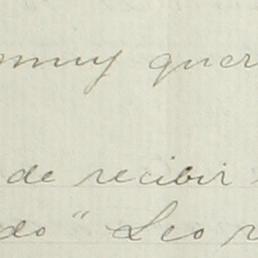 muy quer
de recibir
do" Leo